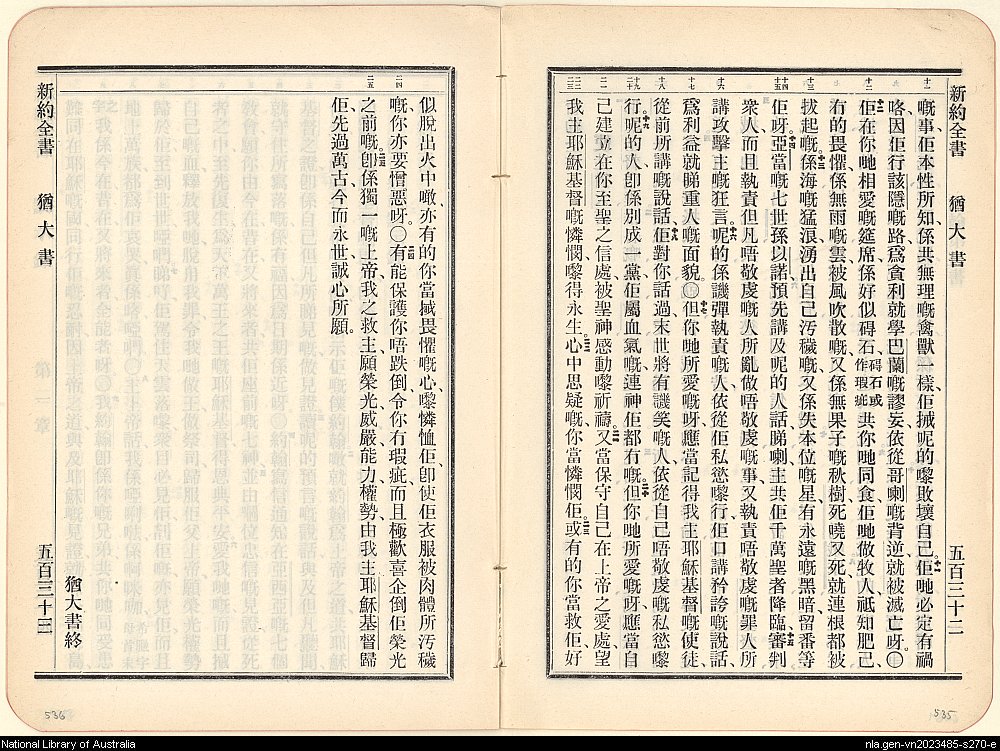 新約全書 猶大書 五百三十二
十一 嘅、事佢本性所知、係共無理嘅禽獸一樣佢搣呢的嚟敗壞自己。十一佢哋必定有禍
咯因佢行該隱嘅路爲貪利就學巴蘭嘅謬妄依從哥喇嘅背逆就被滅亡呀。〇
十二 十二佢在你哋相愛嘅筵席係好似碍石、碍石或作瑕疵共你哋同食佢哋做牧人祗知肥己、
有的畏懼係無雨嘅雲被風吹散嘅、又係無果子嘅秋樹死曉又死就連根都被
十三 拔起嘅。十三係海嘅猛浪湧出自己汚穢嘅、又係失本位嘅星、有永遠嘅黑暗留番等
十四 十五 佢呀。十四亞當嘅七世孫以諾預先講及呢的人話、睇喇主共佢千萬聖者降臨十五審判
衆人、而且執責但凡唔敬虔嘅人所亂做唔敬虔嘅事、又執責唔敬虔嘅罪人所
十六 講攻擊主嘅狂言。十六呢的係譏彈執責嘅人、依從佢私慾嚟行、佢口講矜誇嘅說話、
十七 爲利益就睇重人嘅面貌。〇十七但你哋所愛嘅呀應當記得我主耶穌基督嘅使徒
十八 從前所講嘅說話、十八佢對你話過末世將有譏笑嘅人、依從自己唔敬虔嘅私慾嚟
十九 二十 行。十九呢的人、卽係別成一黨佢屬血氣嘅連神佢都冇嘅。二十但你哋所愛嘅呀應當自
二一 己建立在你至聖之信處被聖神感動嚟祈禱、二一又當保守自己在上帝之愛處望
二二 二三 我主耶穌基督嘅憐憫嚟得永生。二二心中思疑嘅你當憐憫佢。二三或有的你當救佢、好
535
似脫出火中噉、亦有的你當搣畏懼嘅心嚟憐恤佢卽使佢衣服被肉體所汚穢
二四 嘅、你亦要憎惡呀。〇二四有能保護你唔跌倒、令你冇瑕疵而且極歡喜企倒佢榮光
二五 之前嘅。二五卽係獨一嘅上帝、我之救主、願榮光威嚴能力權勢由我主耶穌基督歸
佢先過萬古今而永世誠心所願。
猶大書終
新約全書 猶大書 五百三十三
536
National Library of Australia
nla.gen-vn2023485-s270-e